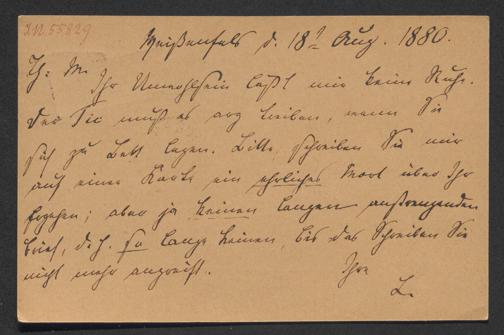 I.N. 55829
Weißenfels d. 18t Aug. 1880.
Th: M. Ihr Unwohlsein läßt mir keine Ruhe.
Der Tic muß es arg treiben, wenn Sie
sich zu Bett legen. Bitte, schreiben Sie mir
auf einer Karte ein ehrliches Wort über Ihr
Ergehen; aber ja keinen langen anstrengenden
Brief, d. h. so lange keinen, bis das Schreiben Sie
nicht mehr angreift.
Ihre
L.